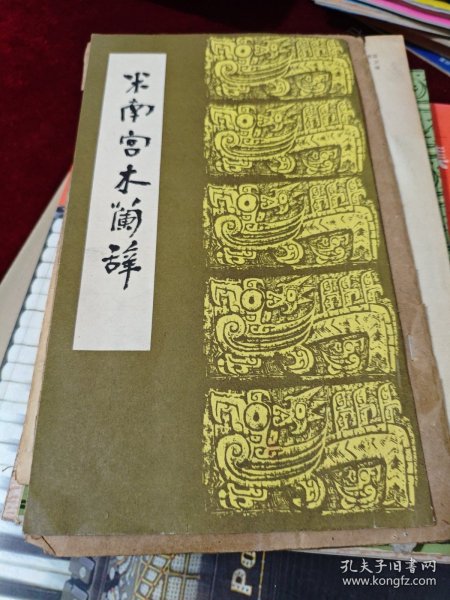 米南宫木兰辞
Po
孔夫子旧书网
www.kongfz.com